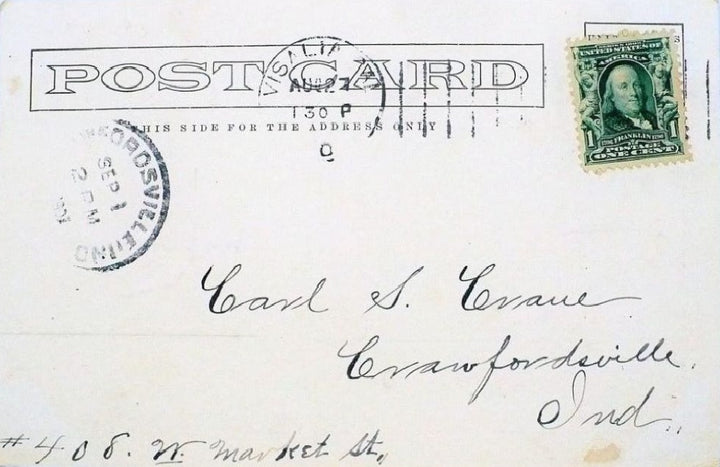 POST CARD
THIS SIDE FOR THE ADDRESS ONLY
VISALIA
AUG 27
1 30 P
UNITED STATES OF
AMERICA
1
FRANKLIN
1
POSTAGE
ONE CENT
FORDSVILLE, IND
SEP 1
2 PM
Carl S. Crane
Crawfordsville,
Ind.,
#408. W. Market St.,